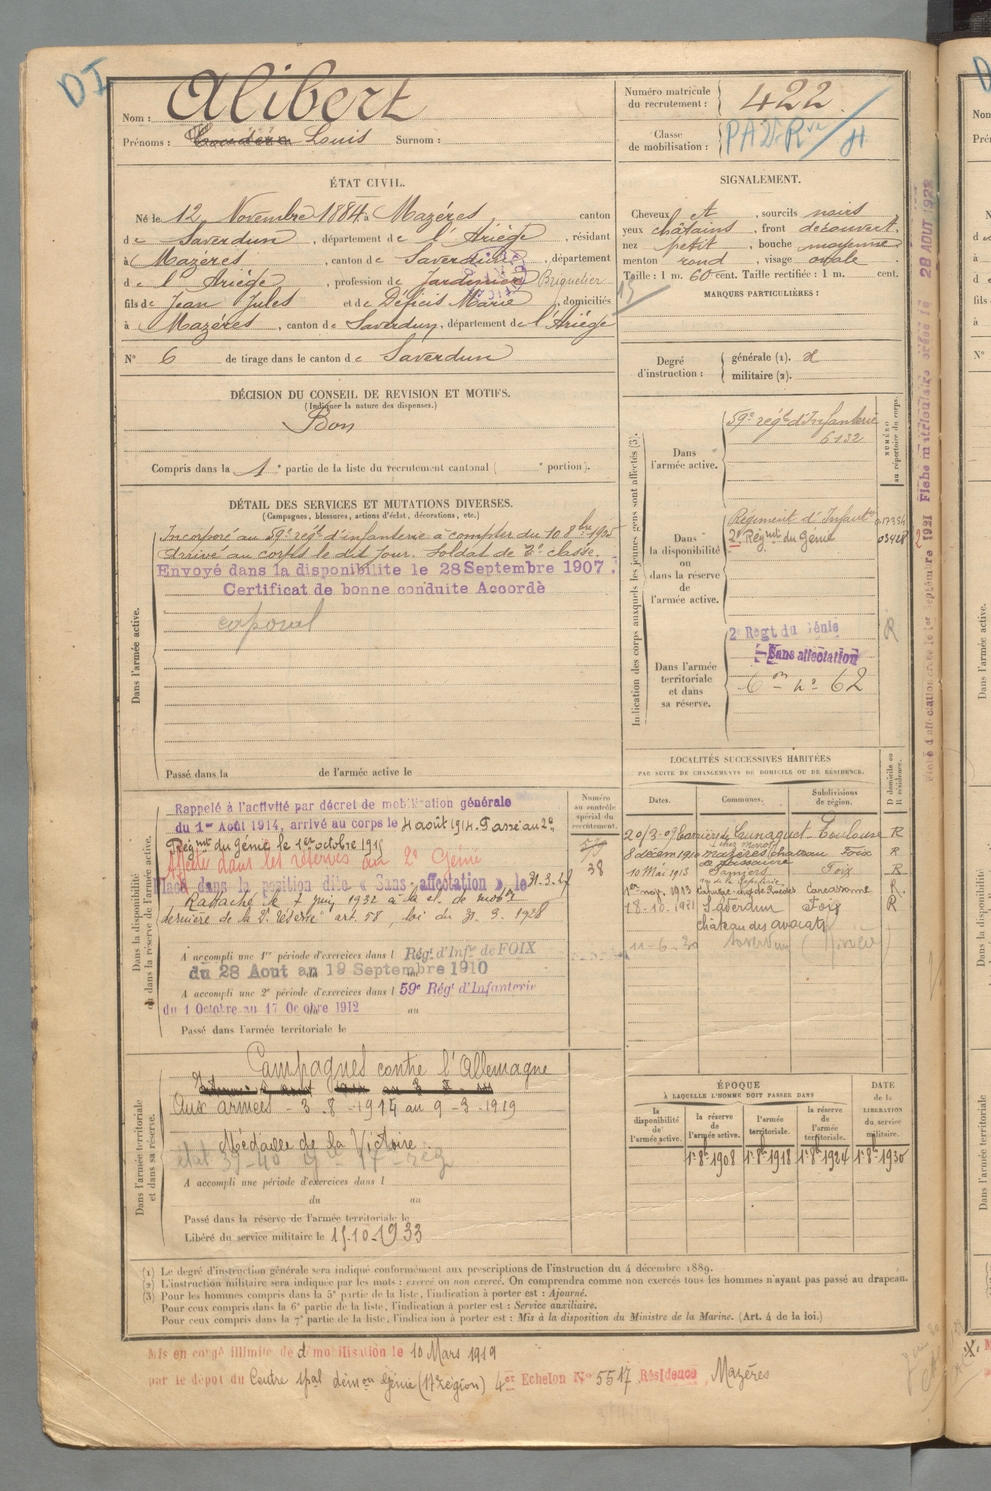 DI
Nom : Alibert
Prénoms : Louis Surnom :
ÉTAT CIVIL.
Né le 12 Novembre 1884 à Mazéres, canton
de Saverdun, département de l'Ariège, résidant
à Mazères, canton de Saverdun, département
de l'Ariége, profession de Jardinier Briquetier
fils de Jean Jules et de Déficis Marie, domiciliés
à Mazéres, canton de Saverdun, département de l'Ariége
N° 6 de tirage dans le canton de Saverdun
DÉCISION DU CONSEIL DE REVISION ET MOTIFS.
(Indiquer la nature des dispenses.)
Bon
Compris dans la 1e partie de la liste du recrutement cantonal ( e portion).
DÉTAIL DES SERVICES ET MUTATIONS DIVERSES.
(Campagnes, blessures, actions d'éclat, décorations, etc.)
Dans l'armée active.
Incorporé au 59e régt d'infanterie à compter du 10 8bre 1905
Arrivé au corps le dit jour. Soldat de 2e classe.
Envoyé dans la disponibilite le 28 Septembre 1907.
Certificat de bonne conduite Accordé
caporal
Passé dans la de l'armée active le
Dans la disponibilité
ou dans la réserve de l'armée active.
Rappelé à l'activité par décret de mobilisation générale
du 1er Août 1914, arrivé au corps le 4 août 1914. Passé au 2e
Régnt du Génie le 1er octobre 1915
Affecté dans les réserves au 2e Génie
Placé dans la position dite « Sans affectation » le 31.3.27
Rattaché le 7 juin 1932 à la cl. de mobon
dernière de la 2e réserve art. 58, loi du 31.3.1928
A accompli une 1re période d'exercices dans l Régt. d'Infie de FOIX
du 28 Aout au 19 Septembre 1910
A accompli une 2e période d'exercices dans l 59e Régt d'Infanterie
du 1 Octobre au 17 Octobre 1912 au
Passé dans l'armée territoriale le
Numéro
au contrôle
spécial du
recrutement.
38
Dans l'armée territoriale
et dans sa réserve.
Campagnes contre l'Allemagne
Aux armées - 3-8-1914 au 9-3-1919
Médaille de la Victoire
A accompli une période d'exercices dans l
du au
Passé dans la réserve de l'armée territoriale le
Libéré du service militaire le 15-10-1933
Numéro matricule
du recrutement : 422
Classe
de mobilisation :
SIGNALEMENT.
Cheveux et, sourcils noirs
yeux châtains, front découvert
nez petit, bouche moyenne
menton rond, visage ovale
Taille : 1 m. 60 cent. Taille rectifiée : 1 m. cent.
MARQUES PARTICULIÈRES :
Degré
d'instruction :
générale (1). 2
militaire (2).
Indication des corps auxquels les jeunes gens sont affectés (3).
NUMÉRO
au répertoire du corps.
Dans
l'armée active.
59e régt d'Infanterie
6132
Dans
la disponibilité
ou
dans la réserve
de
l'armée active.
Régiment d'Infante
2e Régnt du Génie 03428
Dans l'armée
territoriale
et dans
sa réserve.
2e Regt du Génie
Sans affectation
62
R
LOCALITÉS SUCCESSIVES HABITÉES
PAR SUITE DE CHANGEMENTS DE DOMICILE OU DE RÉSIDENCE.
D domicile ou
R résidence.
Dates. Communes. Subdivisions
de région.
20/3-09 Toulouse R
8 décem 1910 Mazères château Foix R
10 Mai 1913 Pamiers Foix R
1er nov. 1913 Carcassonne R
18-10-1921 Saverdun Foix R
château des avocats
11-6-30
ÉPOQUE
À LAQUELLE L'HOMME DOIT PASSER DANS
la
disponibilité
de
l'armée active.
la réserve
de
l'armée active.
l'armée
territoriale.
la réserve
de
l'armée
territoriale.
DATE
de la
LIBÉRATION
du service
militaire.
1er 8bre 1908 1er 8bre 1918 1er 8bre 1924 1er 8bre 1930
(1) Le degré d'instruction générale sera indiqué conformément aux prescriptions de l'instruction du 4 décembre 1889.
(2) L'instruction militaire sera indiquée par les mots : exercé ou non exercé. On comprendra comme non exercés tous les hommes n'ayant pas passé au drapeau.
(3) Pour les hommes compris dans la 5e partie de la liste, l'indication à porter est : Ajourné.
Pour ceux compris dans la 6e partie de la liste, l'indication à porter est : Service auxiliaire.
Pour ceux compris dans la 7e partie de la liste, l'indication à porter est : Mis à la disposition du Ministre de la Marine. (Art. 4 de la loi.)
Mis en congé illimité de démobilisation le 10 Mars 1919
par le dépot du Centre spal démon Génie (17e région) 4er Echelon N° 5517 Résidence Mazères
28 AOUT 1922